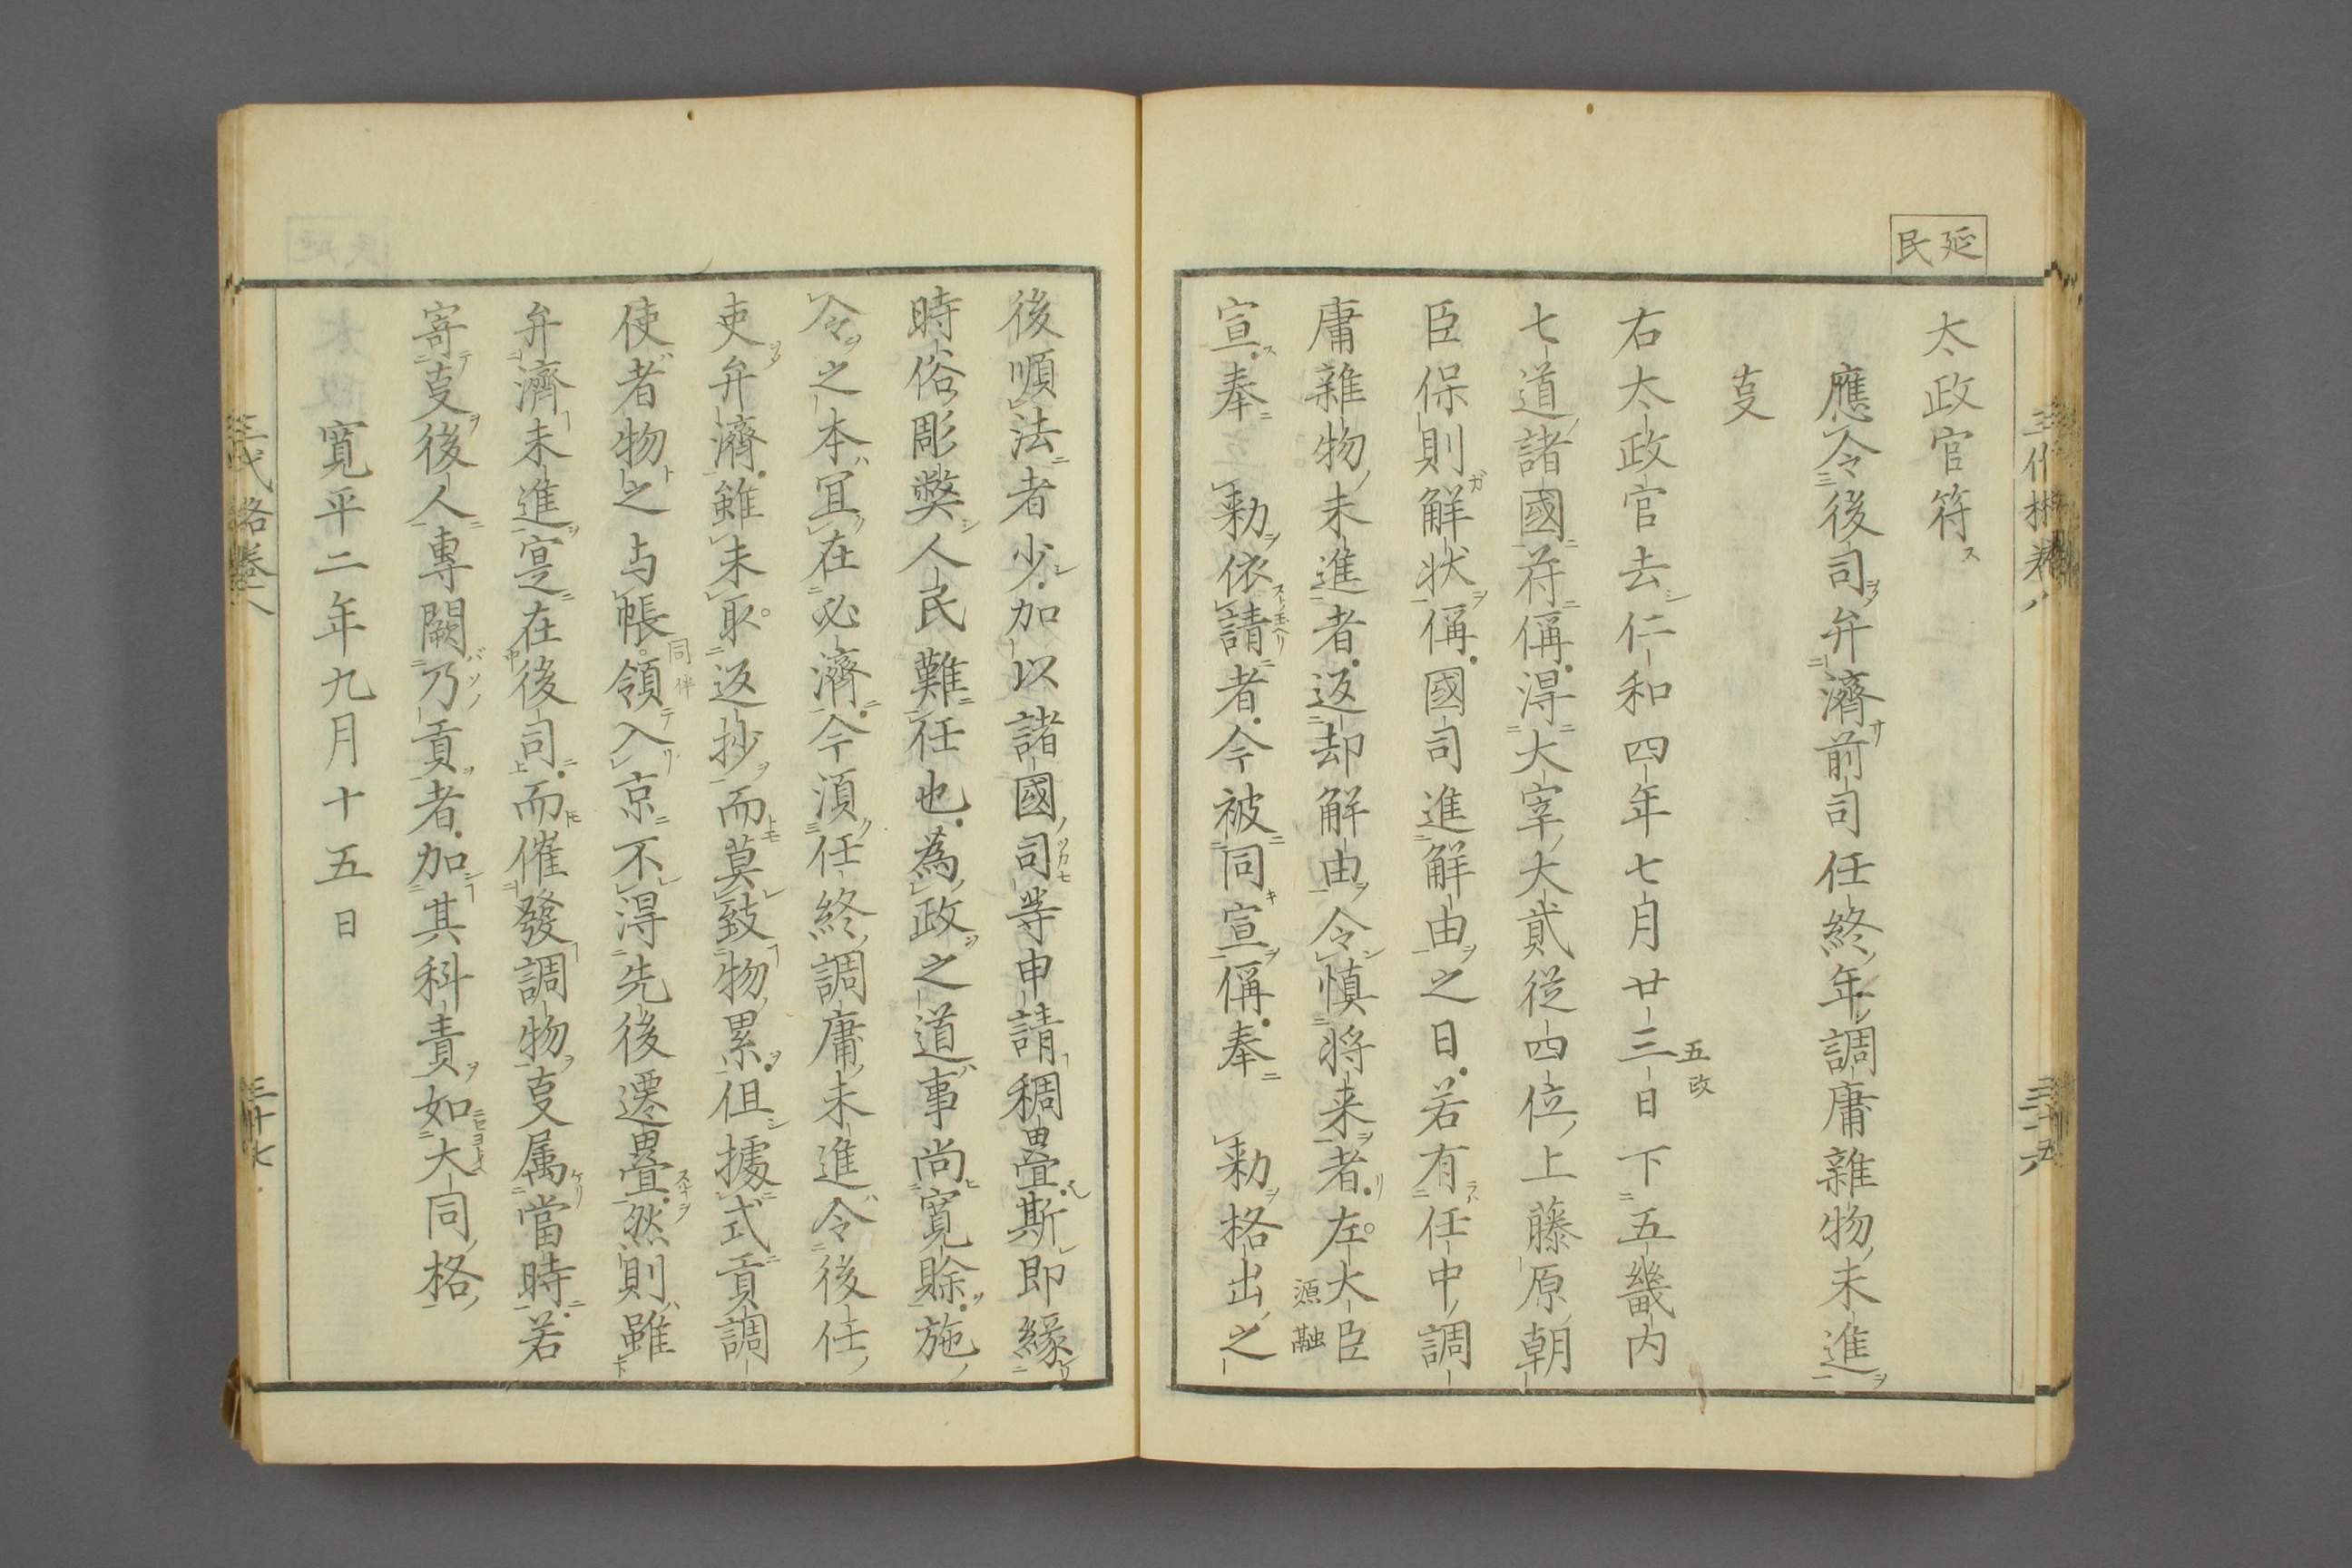 延民
太政官符
應令後司弁濟前司任終年調庸雜物未進
㕝
右太政官去仁和四年七月廿三日下五畿内
五改
七道諸國符偁得大宰大貳從四位上藤原朝
臣保則解狀偁國司進解由之日若有任中調
庸雜物未進者返却解由令慎将来者左大臣
源融
宣奉 勅依請者今被同宣偁奉 勅格出之
後順法者少加以諸國司等申請稠疊斯即緣
時俗彫弊人民難任也為政之道事尚寛賒施
令之本冝在必濟今湏任終調庸未進令後任
吏弁濟雖未取返抄而莫致物累但據式貢調
使者物之与帳領入京不得先後遷疊然則雖
同伴
弁濟未進寔在後司而催發調物㕝属當時若
寄㕝後人專闕乃貢者加其科責如大同格
寛平二年九月十五日
三代格巻八
三十七